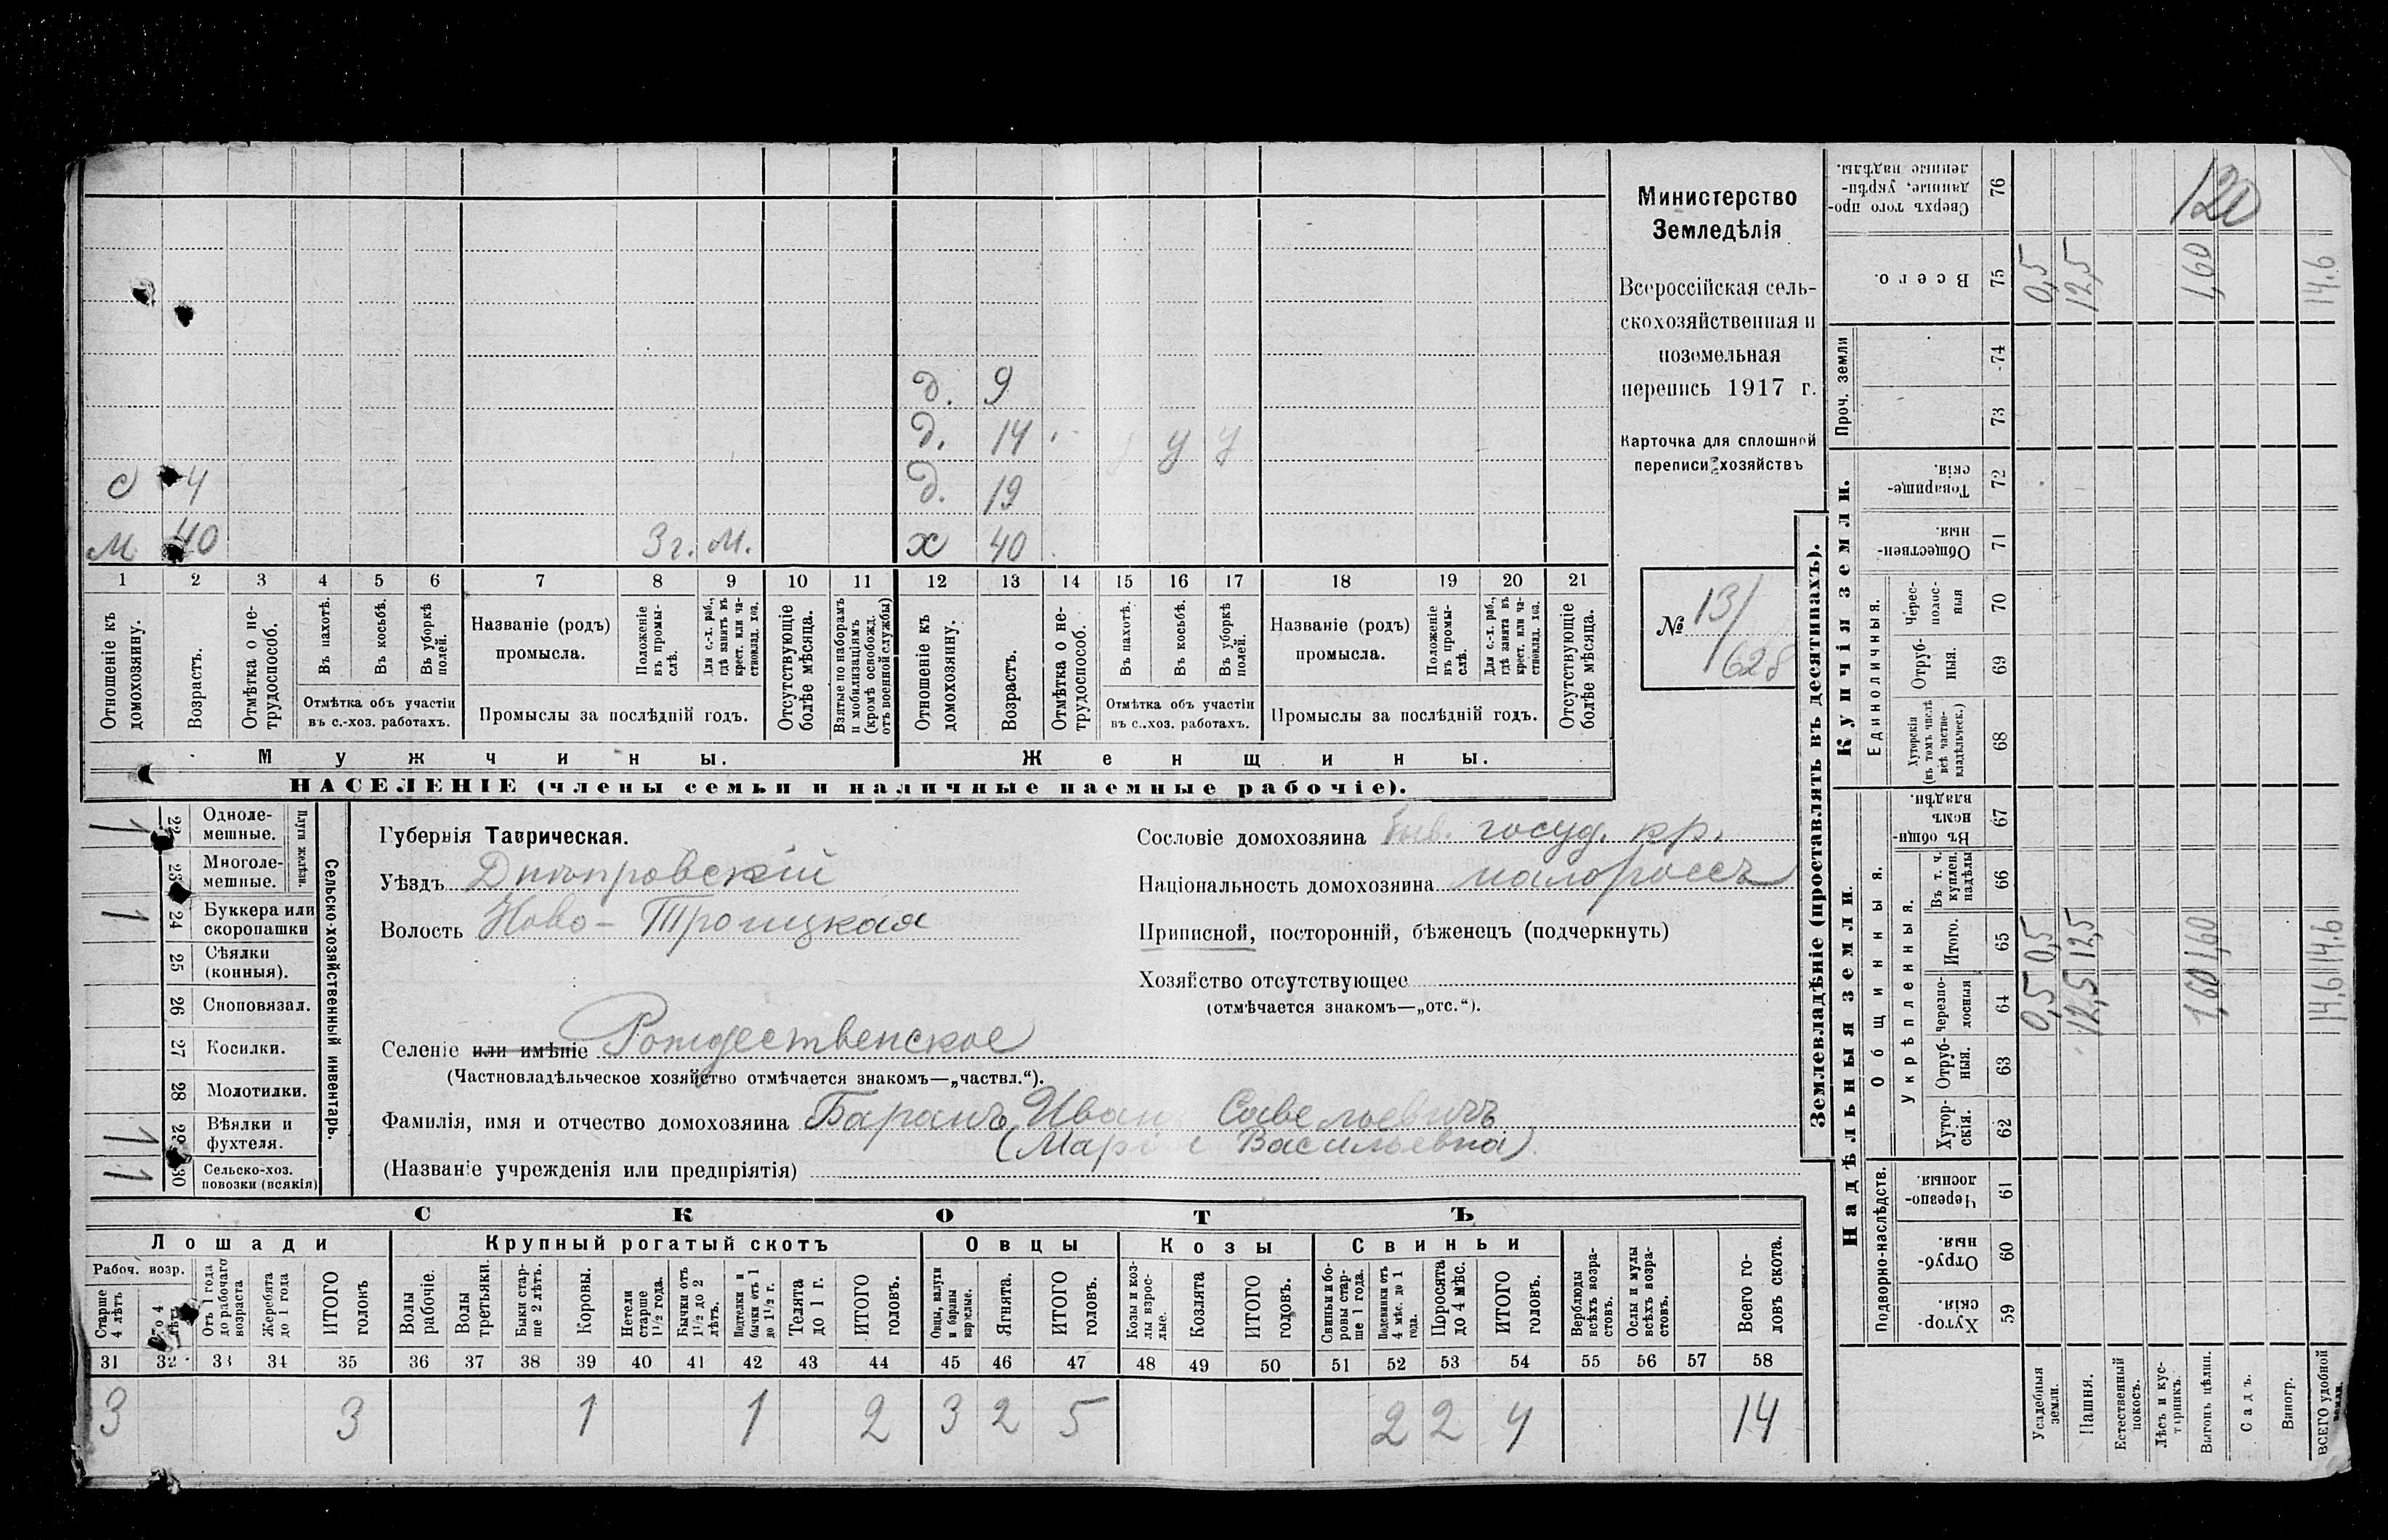 д. 9
д. 14 у у
с 4 д. 19
м 40 3 г. м. х 40
1 2 3 4 5 6 7 8 9 10 11 12 13 14 15 16 17 18 19 20 21
Отношеніе къ домохозяину.
Возрастъ.
Отмѣтка о нетрудоспособ.
Въ пахотѣ.
Въ косьбѣ.
Въ уборкѣ полей.
Отмѣтка объ участіи
въ с.-хоз. работахъ.
Названіе (родъ)
промысла.
Положеніе въ промыслѣ.
Для с.-х. раб., гдѣ занятъ въ крест. или частновлад. хоз.
Промыслы за послѣдній годъ.
Отсутствующіе болѣе мѣсяца.
Взятые по наборамъ и мобилизаціямъ (кромѣ освобожд. отъ военной службы)
Отношеніе къ домохозяину.
Возрастъ.
Отмѣтка о нетрудоспособ.
Въ пахотѣ.
Въ косьбѣ.
Въ уборкѣ полей.
Отмѣтка объ участіи
въ с.-хоз. работахъ.
Названіе (родъ)
промысла.
Положеніе въ промыслѣ.
Для с.-х. раб., гдѣ занята въ крест. или частновлад. хоз.
Промыслы за послѣдній годъ.
Отсутствующіе болѣе мѣсяца.
Мужчины. Женщины.
НАСЕЛЕНІЕ (члены семьи и наличные наемные рабочіе).
Министерство
Земледѣлія
Всероссійская сель-
скохозяйственная и
поземельная
перепись 1917 г.
Карточка для сплошной
переписи хозяйствъ
№ 13/
628
1 22 Однолемешные.
23 Многолемешные.
Плуги желѣзн.
1 24 Буккера или скоропашки
25 Сѣялки (конныя).
26 Сноповязал.
27 Косилки.
28 Молотилки.
1 29 Вѣялки и фухтеля.
1 30 Сельско-хоз. повозки (всякія)
Сельско-хозяйственный инвентарь.
Губернія Таврическая.
Уѣздъ Днѣпровскій
Волость Ново-Троицкая
Селеніе или имѣніе Рождественское
(Частновладѣльческое хозяйство отмѣчается знакомъ—„частвл.“).
Фамилія, имя и отчество домохозяина Баранъ Иванъ Савельевичъ
(Марія Васильевна)
(Названіе учрежденія или предпріятія)
Сословіе домохозяина быв. госуд. кр.
Національность домохозяина малороссъ
Приписной, посторонній, бѣженецъ (подчеркнуть)
Хозяйство отсутствующее
(отмѣчается знакомъ—„отс.“).
СКОТЪ
Лошади Крупный рогатый скотъ Овцы Козы Свиньи
Рабоч. возр.
Старше 4 лѣтъ
До 4 лѣтъ
Отъ 1 года до рабочаго возраста
Жеребята до 1 года
ИТОГО головъ
Волы рабочіе.
Волы третьяки.
Быки старше 2 лѣтъ.
Коровы.
Нетели старше 1½ года.
Бычки отъ 1½ до 2 лѣтъ.
Подтелки и бычки отъ 1 до 1½ г.
Телята до 1 г.
ИТОГО головъ.
Овцы, валухи и бараны взрослые.
Ягнята.
ИТОГО головъ.
Козы и козлы взрослые.
Козлята
ИТОГО головъ.
Свиньи и боровы старше 1 года.
Подсвинки отъ 4 мѣс. до 1 года.
Поросята до 4 мѣс.
ИТОГО головъ.
Верблюды всѣхъ возрастовъ.
Ослы и мулы всѣхъ возрастовъ.
Всего головъ скота.
31 32 33 34 35 36 37 38 39 40 41 42 43 44 45 46 47 48 49 50 51 52 53 54 55 56 57 58
3 3 1 1 2 3 2 5 2 2 4 14
Землевладѣніе (проставлять въ десятинахъ).
Надѣльныя земли. Купчія земли.
Подворно-наслѣдств.
Общинныя.
Укрѣпленныя.
Единоличныя.
Проч. земли
Сверхъ того проданные, укрѣпленные надѣлы. 76 120
Всего. 75 0,5 12,5 1,60 14,6
74
73
Товарищескія. 72
Общественныя. 71
Чересполосныя 70
Отрубныя. 69
Хуторскія (въ томъ числѣ всѣ частновладѣльческ.) 68
Въ общинномъ владѣн. 67
Въ т. ч. куплен. надѣлы 66
Итого. 65 0,5 12,5 1,60 14,6
Черезполосныя 64 0,5 12,5 1,60 14,6
Отрубныя. 63
Хуторскія. 62
Черезполосныя. 61
Отрубныя. 60
Хуторскія. 59
Усадебныя земли.
Пашня.
Естественный покосъ.
Лѣсъ и кустарникъ.
Выгонъ цѣлин.
Садъ.
Виногр.
ВСЕГО удобной земли.